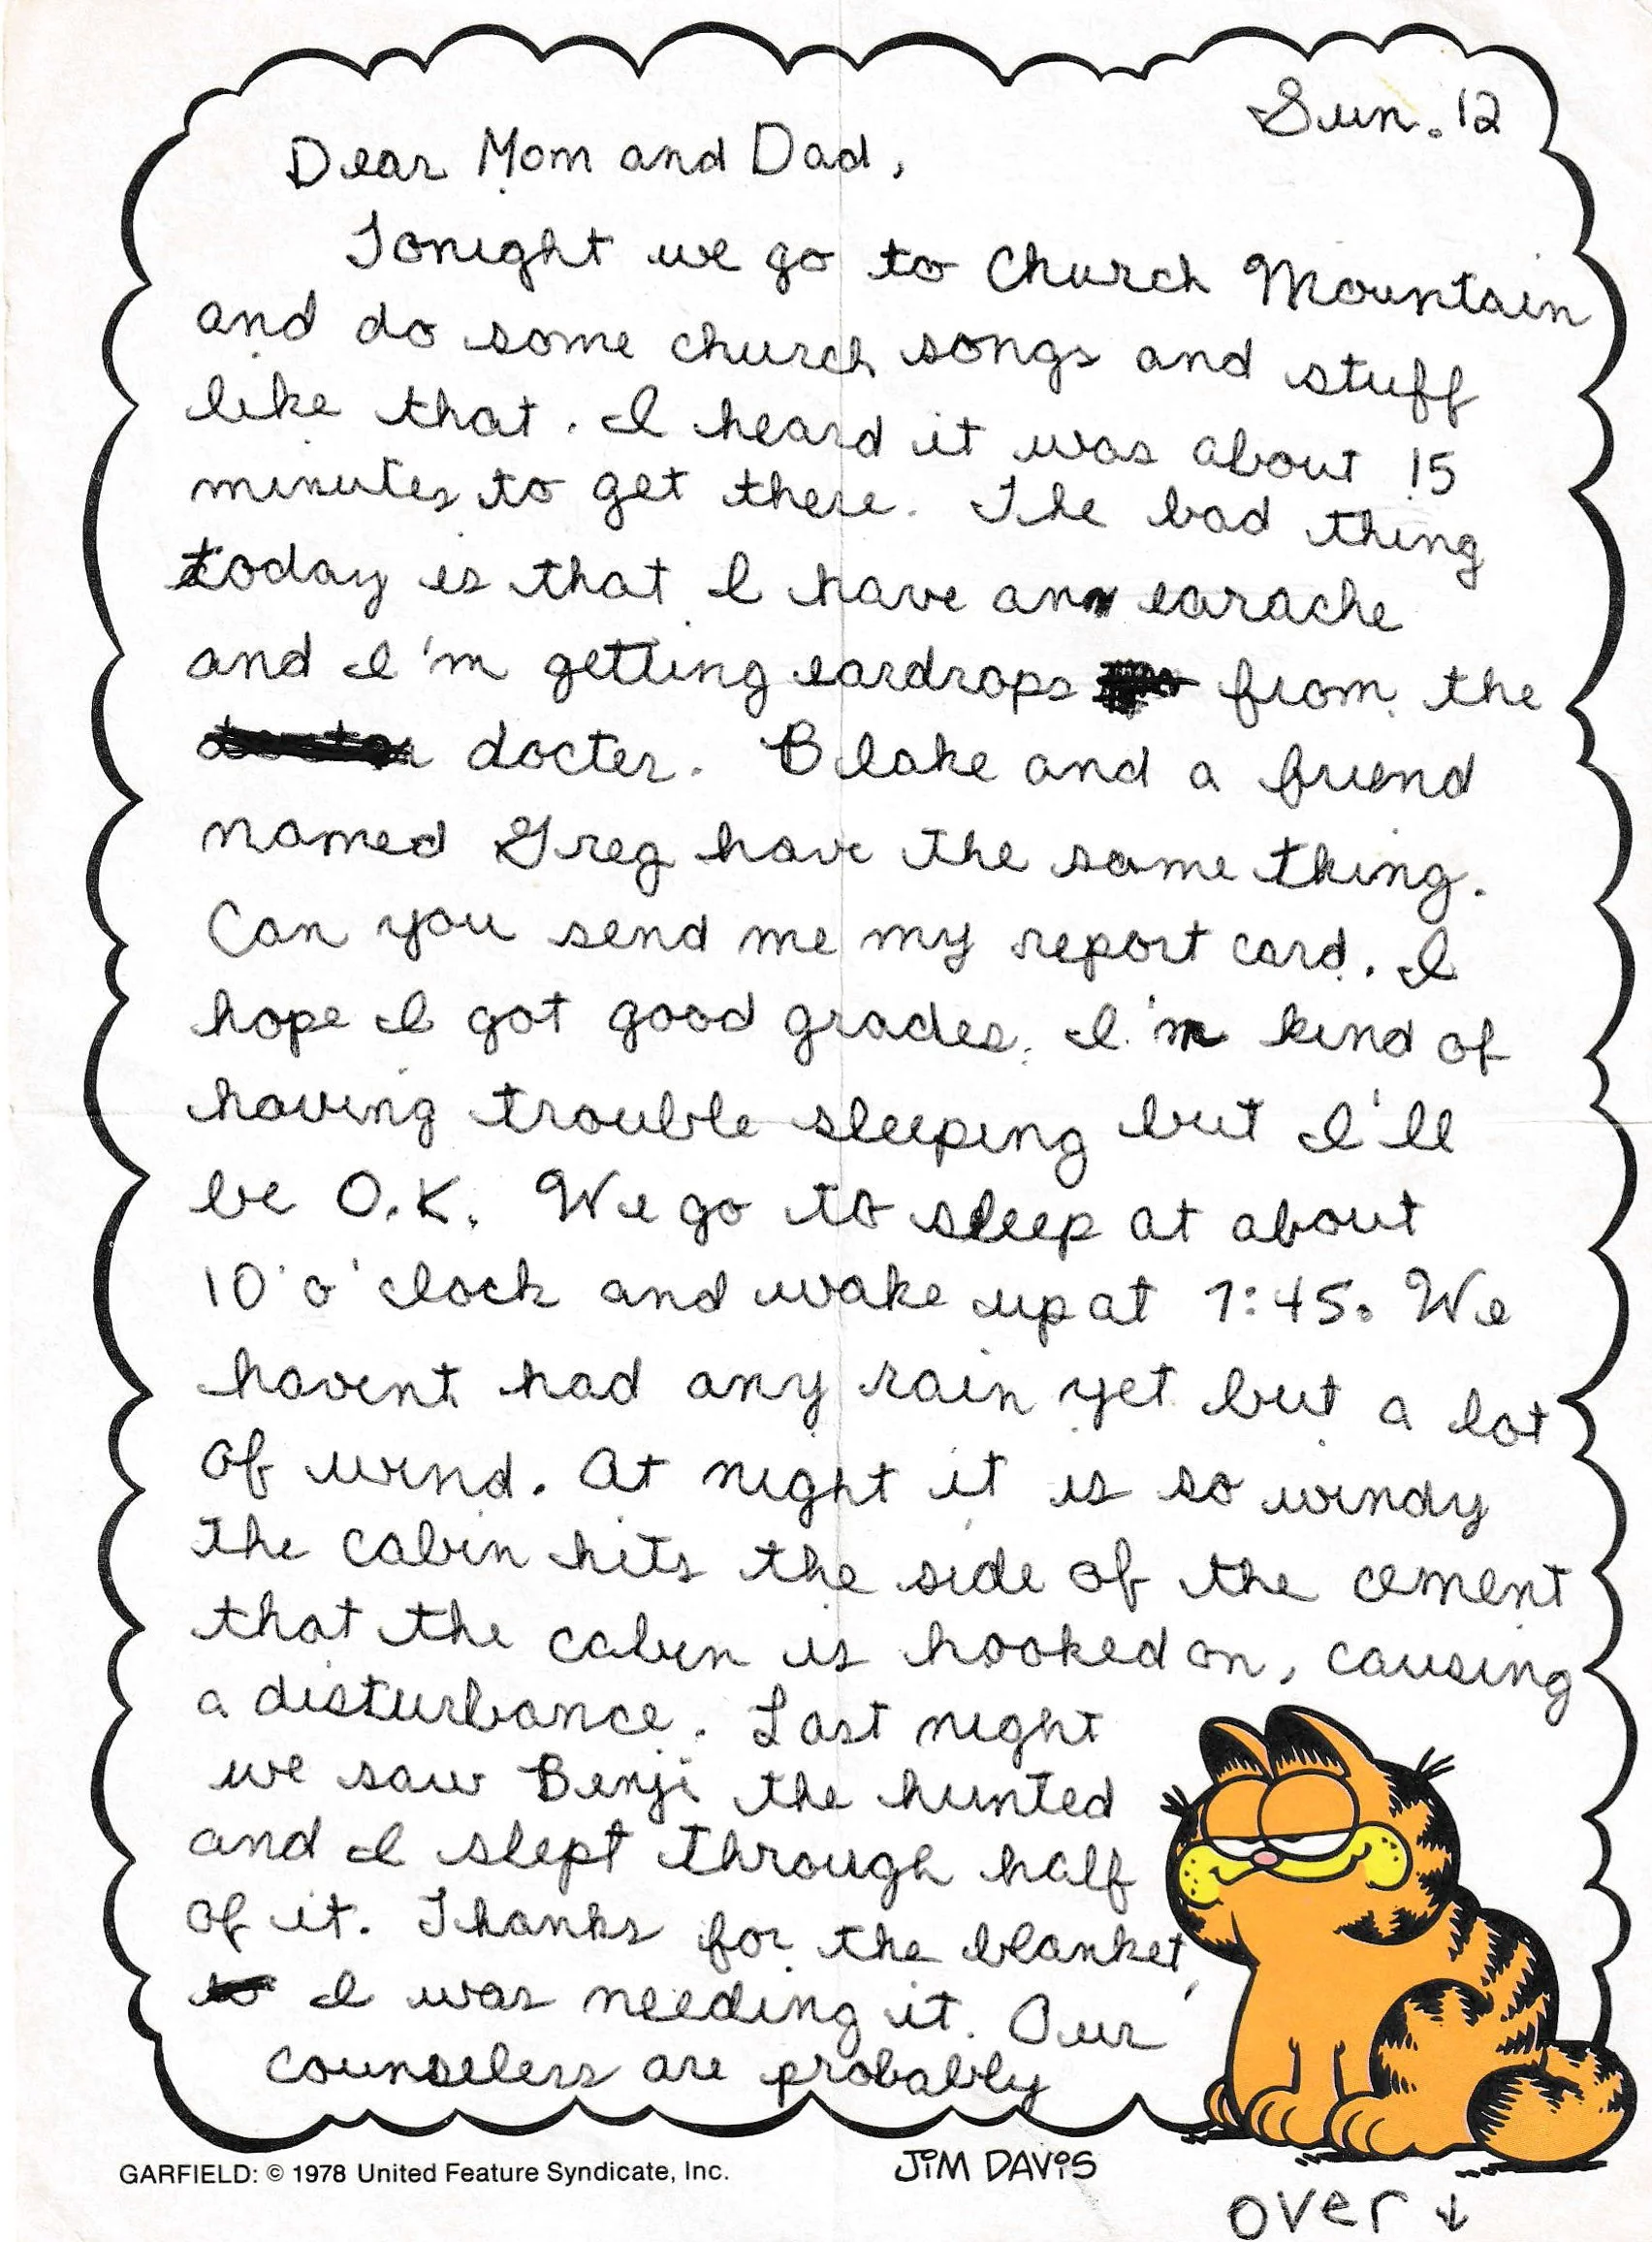 Sun. 12
Dear Mom and Dad,
Tonight we go to Church Mountain
and do some church songs and stuff
like that. I heard it was about 15
minutes to get there. The bad thing
today is that I have an earache
and I'm getting eardrops from the
docter. Blake and a friend
named Greg have the same thing.
Can you send me my report card. I
hope I got good grades. I'm kind of
having trouble sleeping but I'll
be O.K. We go to sleep at about
10 o'clock and wake up at 7:45. We
havent had any rain yet but a lot
of wind. At night it is so windy
the cabin hits the side of the cement
that the cabin is hooked on, causing
a disturbance. Last night
we saw Benji the hunted
and I slept through half
of it. Thanks for the blanket,
I was needing it. Our
counselers are probably
GARFIELD: © 1978 United Feature Syndicate, Inc.
JIM DAVIS
over ↓